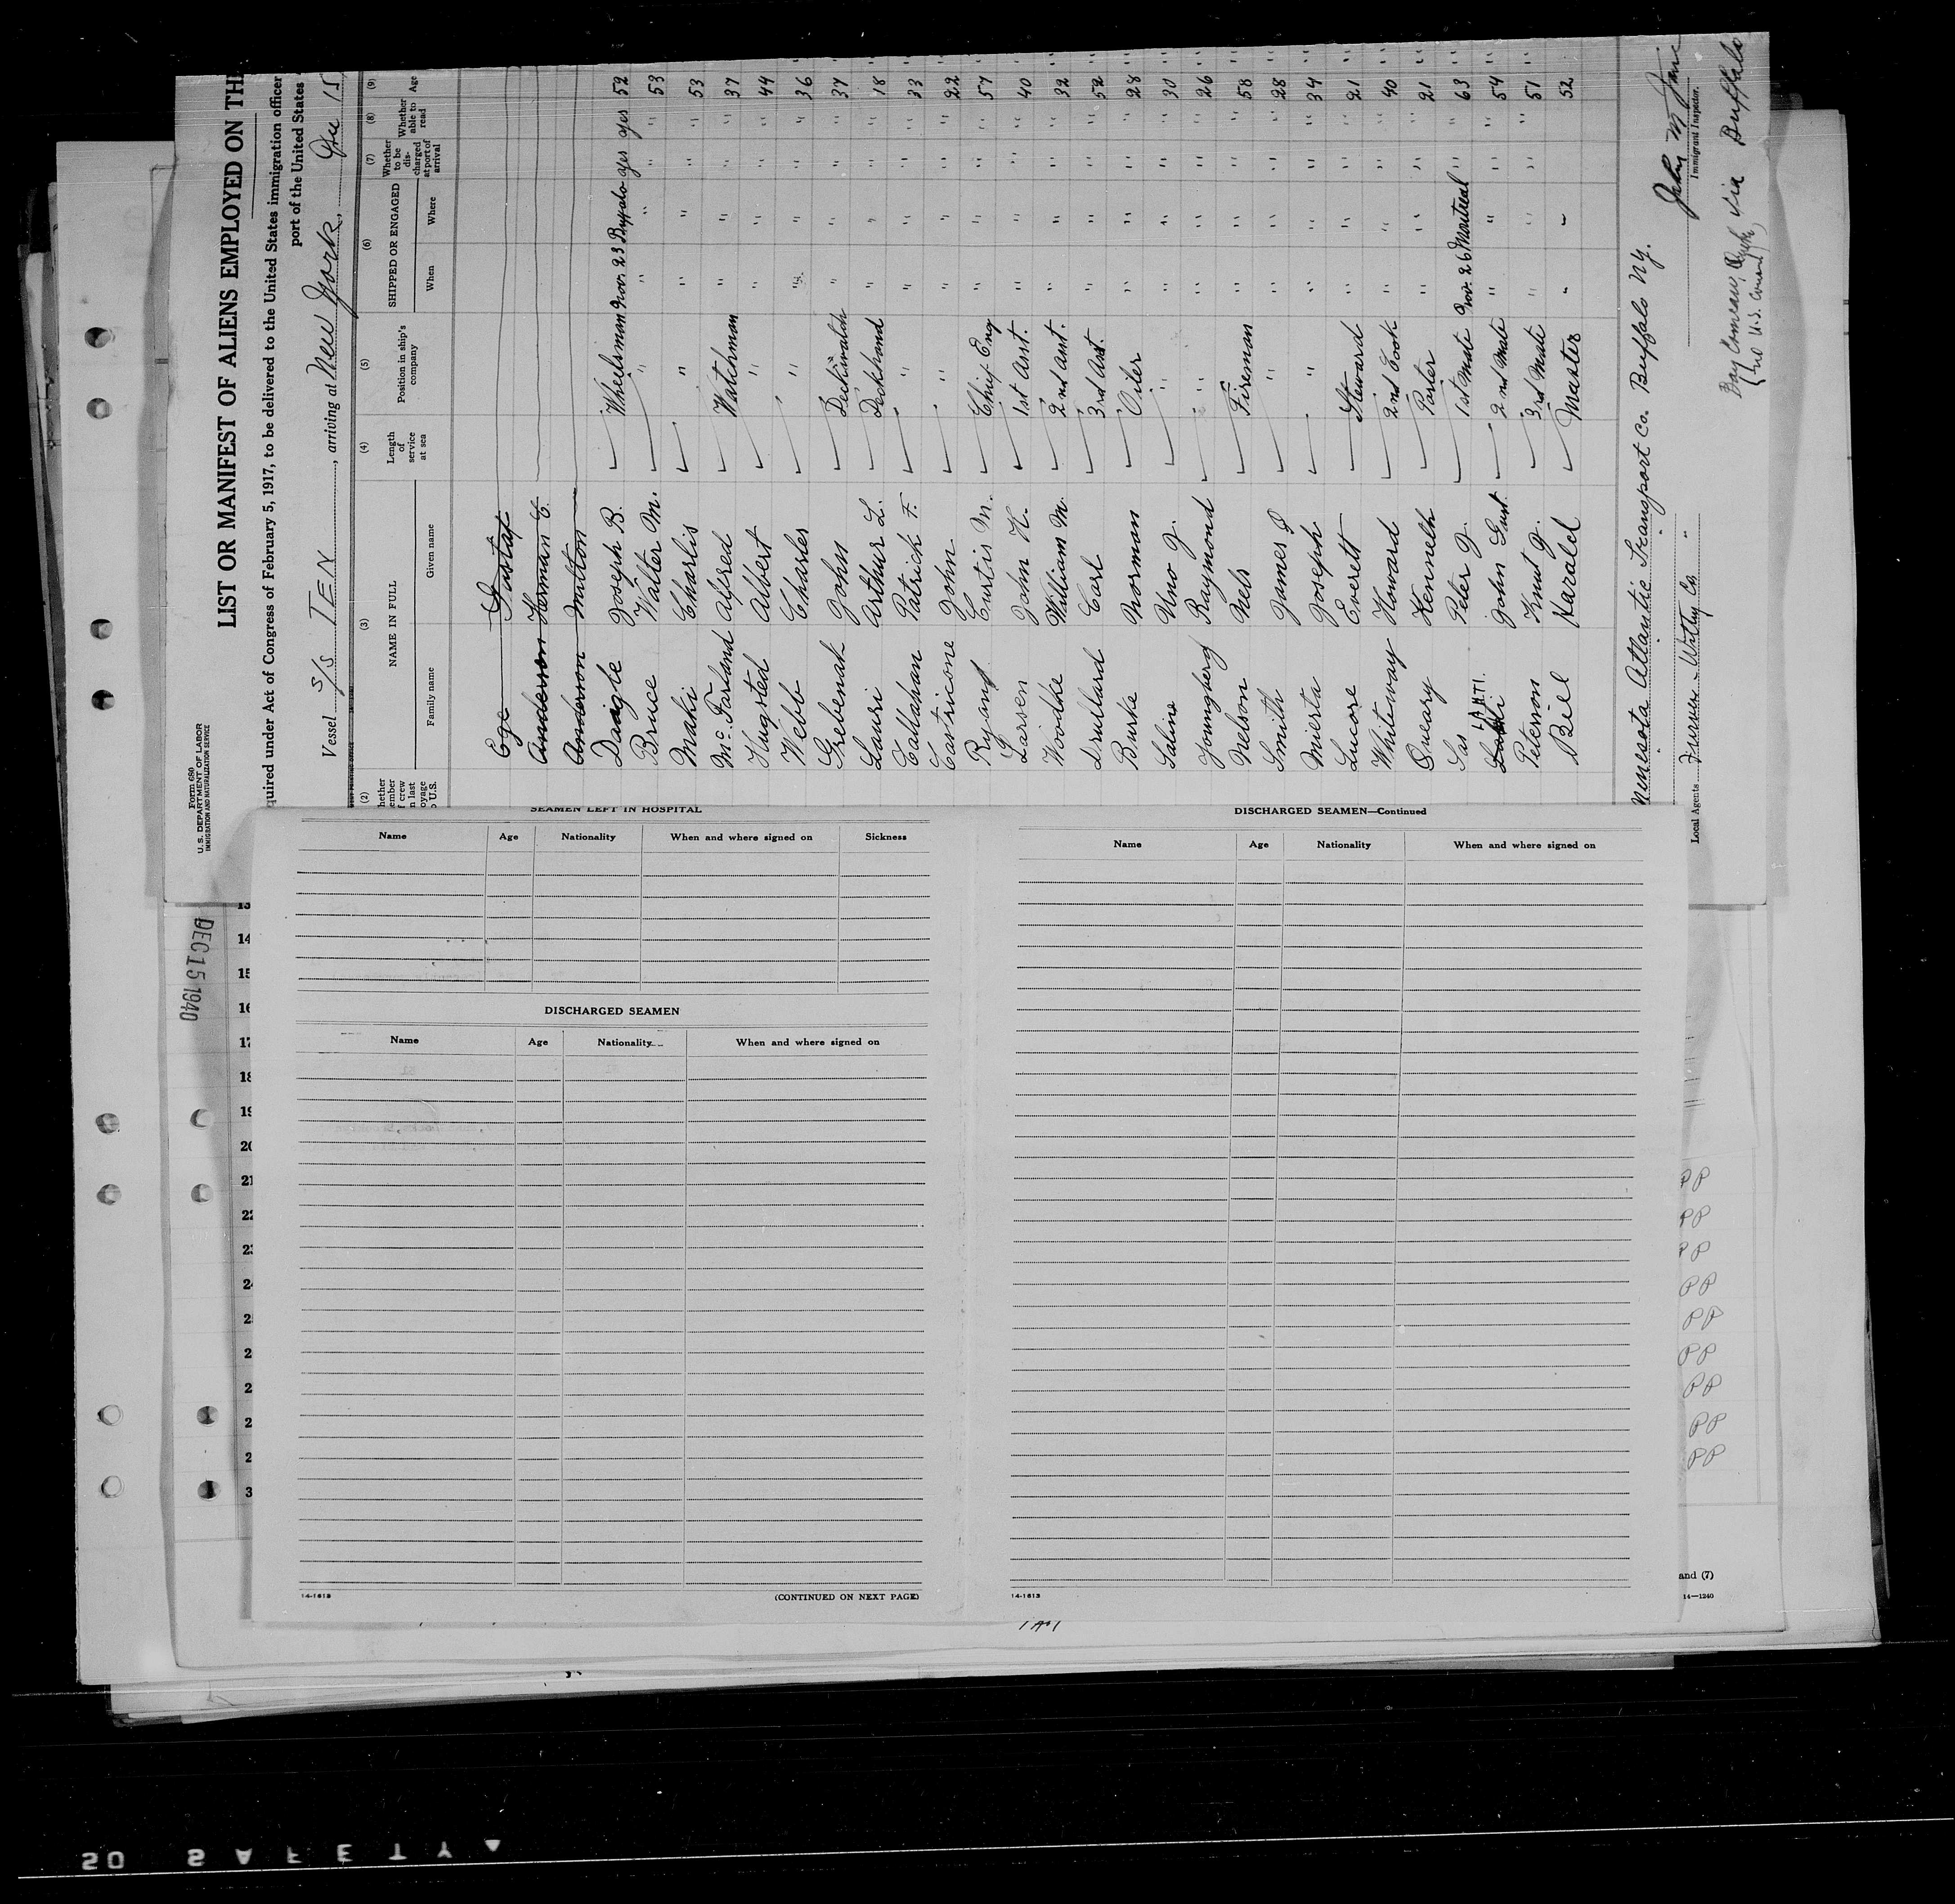 Form 680
U. S. DEPARTMENT OF LABOR
IMMIGRATION AND NATURALIZATION SERVICE
LIST OR MANIFEST OF ALIENS EMPLOYED ON TH
quired under Act of Congress of February 5, 1917, to be delivered to the United States immigration officer
port of the United States
Vessel S/S TEN, arriving at New York, Dec 15
(2) (3) (4) (5) (6) (7) (8) (9)
NAME IN FULL
Family name Given name
Length of service at sea
Position in ship's company
SHIPPED OR ENGAGED
When Where
Whether to be discharged at port of arrival
Whether able to read
Age
Ege Gustaf
Anderson Herman E.
Anderson Milton
Daigle Joseph B. Wheelsman Nov. 23 Buffalo yes yes 52
Bruce Walter M. " " " " " 53
Maki Charlis " " " " " 53
Mc.Farland Alfred Watchman " " " " 37
Hugsted Albert " " " " " 44
Webb Charles " " " " " 36
Grebenak John Deckwatch " " " " 37
Lauri Arthur L. Deckhand " " " " 18
Callahan Patrick F. " " " " " 33
Castricone John " " " " " 22
Ryan Curtis M. Chief Eng " " " " 57
Larsen John K. 1st Asst. " " " " 40
Woodke William M. 2nd Asst. " " " " 32
Drullard Carl 3rd Asst. " " " " 52
Burke Norman Oiler " " " " 28
Saline Uno G. " " " " " 30
Youngberg Raymond " " " " " 26
Nelson Nels Fireman " " " " 58
Smith James J " " " " " 28
Mierta Joseph " " " " " 34
Lucore Everett Steward " " " " 21
Whiteway Howard 2nd Cook " " " " 40
Queary Kenneth Porter " " " " 21
Sas Peter G. 1st Mate Nov. 26 Montreal " " 63
LAHTI John Gust. 2nd Mate " " " " 54
Peterson Knut G. 3rd Mate " " " " 51
Bill Harald Master " " 52
Minnesota Atlantic Transport Co. Buffalo N.Y.
Local Agents
Immigrant Inspector.
Via Buffalo
SEAMEN LEFT IN HOSPITAL
Name Age Nationality When and where signed on Sickness
DISCHARGED SEAMEN
Name Age Nationality When and where signed on
14-1613 (CONTINUED ON NEXT PAGE)
DISCHARGED SEAMEN—Continued
Name Age Nationality When and where signed on
14-1613
DEC 15 1940
14
15
16
17
18
20
21
22
PP
PP
PP
PP
PP
PP
PP
PP
PP
and (7)
14—1240
SAFETY